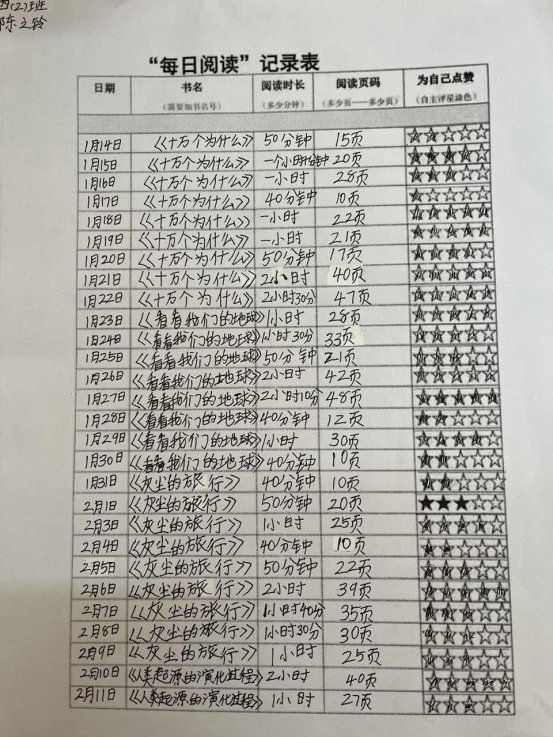 西(2)班
陈立铃
“每日阅读”记录表
日期 书名 阅读时长 阅读页码 为自己点赞
(需要加书名号) (多少分钟) (多少页——多少页) (自主评星涂色)
1月14日 《十万个为什么》 50分钟 15页
1月15日 《十万个为什么》 一个小时十分钟 20页
1月16日 《十万个为什么》 一小时 28页
1月17日 《十万个为什么》 40分钟 10页
1月18日 《十万个为什么》 一小时 22页
1月19日 《十万个为什么》 一小时 21页
1月20日 《十万个为什么》 50分钟 17页
1月21日 《十万个为什么》 2小时 40页
1月22日 《十万个为什么》 2小时30分 47页
1月23日 《看看我们的地球》 1小时 28页
1月24日 《看看我们的地球》 1小时30分 33页
1月25日 《看看我们的地球》 50分钟 21页
1月26日 《看看我们的地球》 2小时 42页
1月27日 《看看我们的地球》 2小时10分 48页
1月28日 《看看我们的地球》 40分钟 12页
1月29日 《看看我们的地球》 1小时 30页
1月30日 《看看我们的地球》 40分钟 10页
1月31日 《灰尘的旅行》 40分钟 10页
2月1日 《灰尘的旅行》 50分钟 20页
2月3日 《灰尘的旅行》 1小时 25页
2月4日 《灰尘的旅行》 40分钟 10页
2月5日 《灰尘的旅行》 50分钟 22页
2月6日 《灰尘的旅行》 2小时 39页
2月7日 《灰尘的旅行》 1小时40分 35页
2月8日 《灰尘的旅行》 1小时30分 30页
2月9日 《灰尘的旅行》 1小时 25页
2月10日 《人类起源的演化过程》 2小时 40页
2月11日 《人类起源的演化过程》 1小时 27页